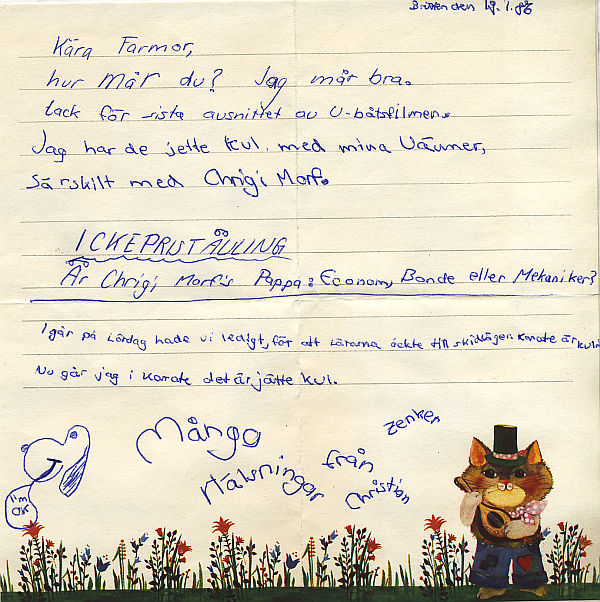 den 19.1.86
Kära Farmor,
hur mår du? Jag mår bra.
tack för sista avsnittet av U-båtsfilmen.
Jag har de jette kul. med mina Vänner,
särskilt med Chrigi Morf.
ICKEPRISTÄLLING
Är Chrigi Morfis Pappa: Econom, Bonde eller Mekaniker?
Igår på Lördag hade vi ledigt, för att Lärarna åckte till skidlägen. Karate är kul.
Nu går jag i Karate det är jätte kul.
Många
Hälsningar från
Christian
Zenker
i'm
OK